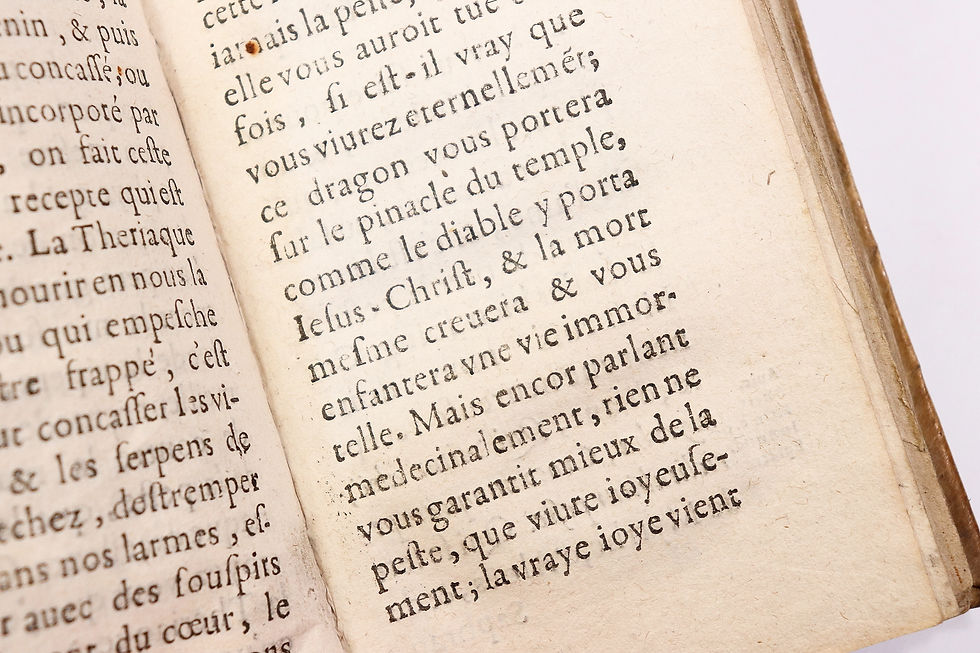 nin, & puis
concassé; ou
incorporé par
, on fait ceste
recepte qui est
La Theriaque
mourir en nous la
qui empesche
frappé, c'est
concasser les vi-
& les serpens de
echez, destremper
dans nos larmes, es-
auec des souspirs
du cœur, le
cette
iamais la peste,
elle vous auroit tué
fois, si est-il vray que
vous viurez eternellemẽt;
ce dragon vous portera
sur le pinacle du temple,
comme le diable y porta
Iesus-Christ, & la mort
mesme creuera & vous
enfantera vne vie immor-
telle. Mais encor parlant
medecinalement, rien ne
vous garantit mieux de la
peste, que viure ioyeuse-
ment; la vraye ioye vient